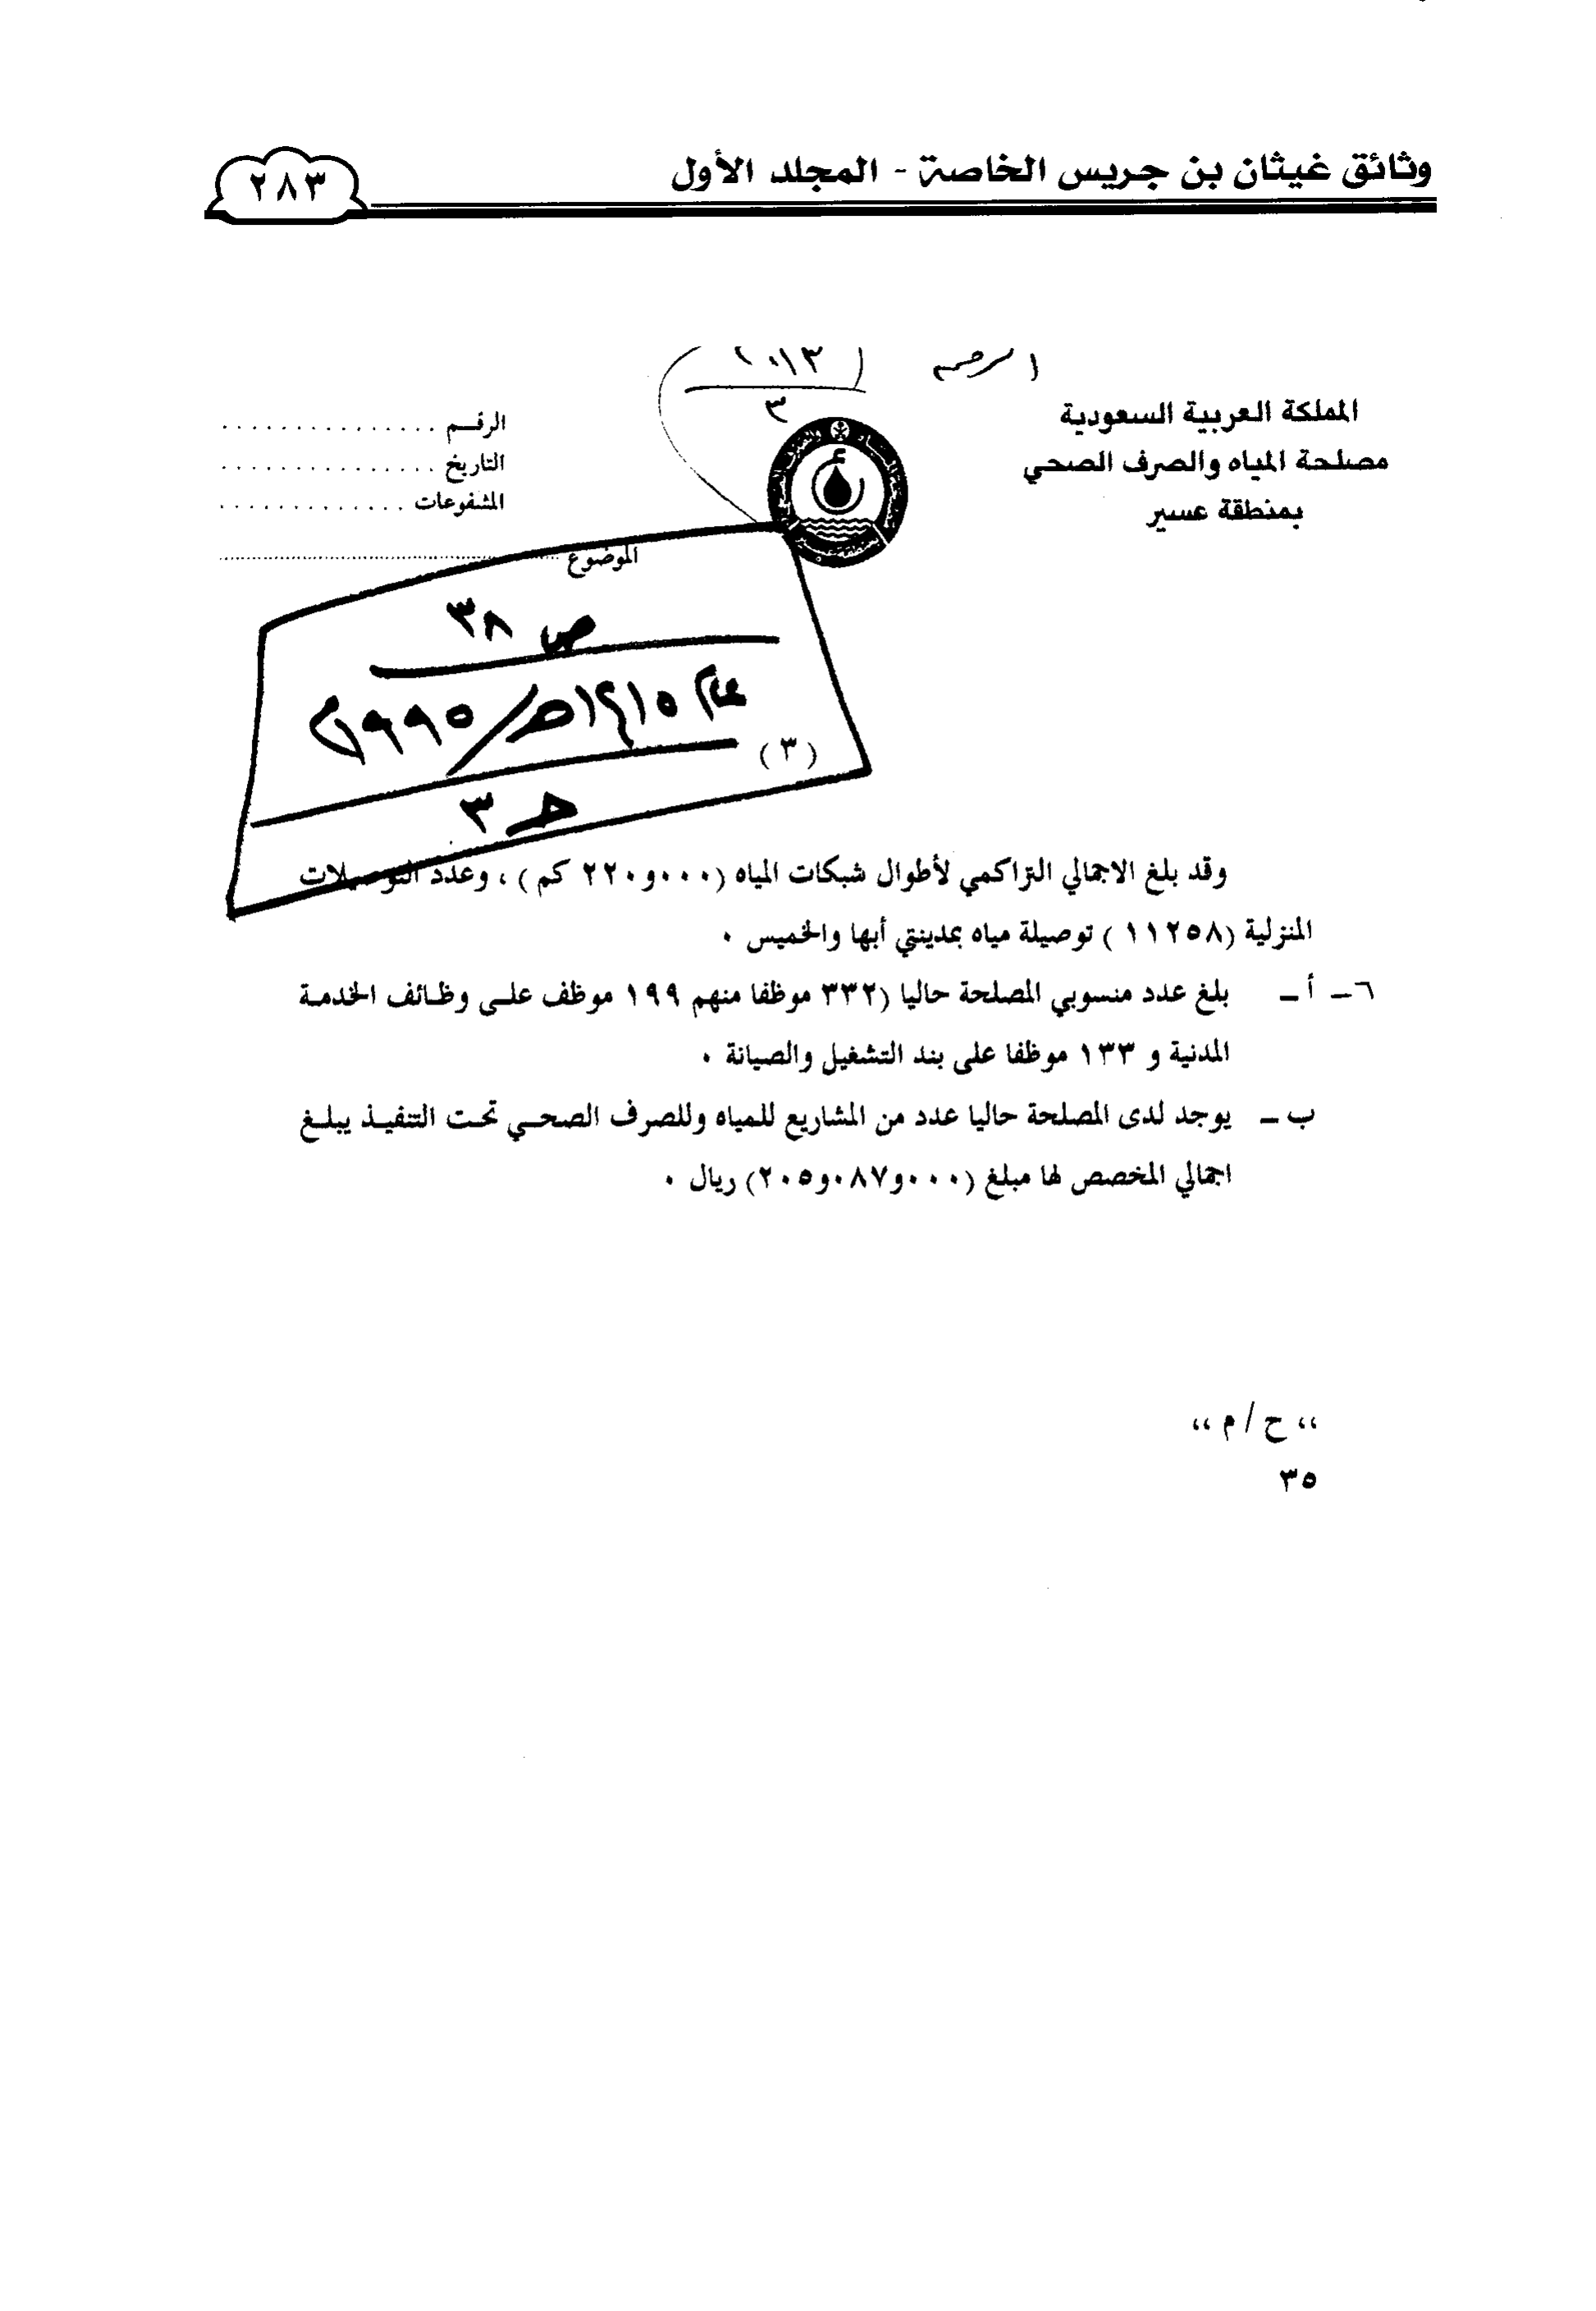 وثائق غيثان بن جريس الخاصة - المجلد الأول
٢٨٣
الرحيم
٣
المملكة العربية السعودية
مصلحة المياه والصرف الصحي
بمنطقة عسير
الرقم ...............
التاريخ ...............
المشفوعات .............
الموضوع
ص ٣٨
عام ١٤١٥هـ/١٩٩٥م
(٣)
هـ ٣
وقد بلغ الاجمالي التراكمي لأطوال شبكات المياه (٠٠٠و٢٢٠ كم) ، وعدد التوصيلات
المنزلية (١١٢٥٨) توصيلة مياه بمدينتي أبها والخميس ٠
٦- أ - بلغ عدد منسوبي المصلحة حاليا (٣٣٢ موظفا منهم ١٩٩ موظف على وظائف الخدمة
المدنية و ١٣٣ موظفا على بند التشغيل والصيانة ٠
ب - يوجد لدى المصلحة حاليا عدد من المشاريع للمياه وللصرف الصحي تحت التنفيذ يبلغ
اجمالي المخصص لها مبلغ (٠٠٠و٠٨٧و٢٠٥) ريال ٠
،، ح/م ،،
٣٥